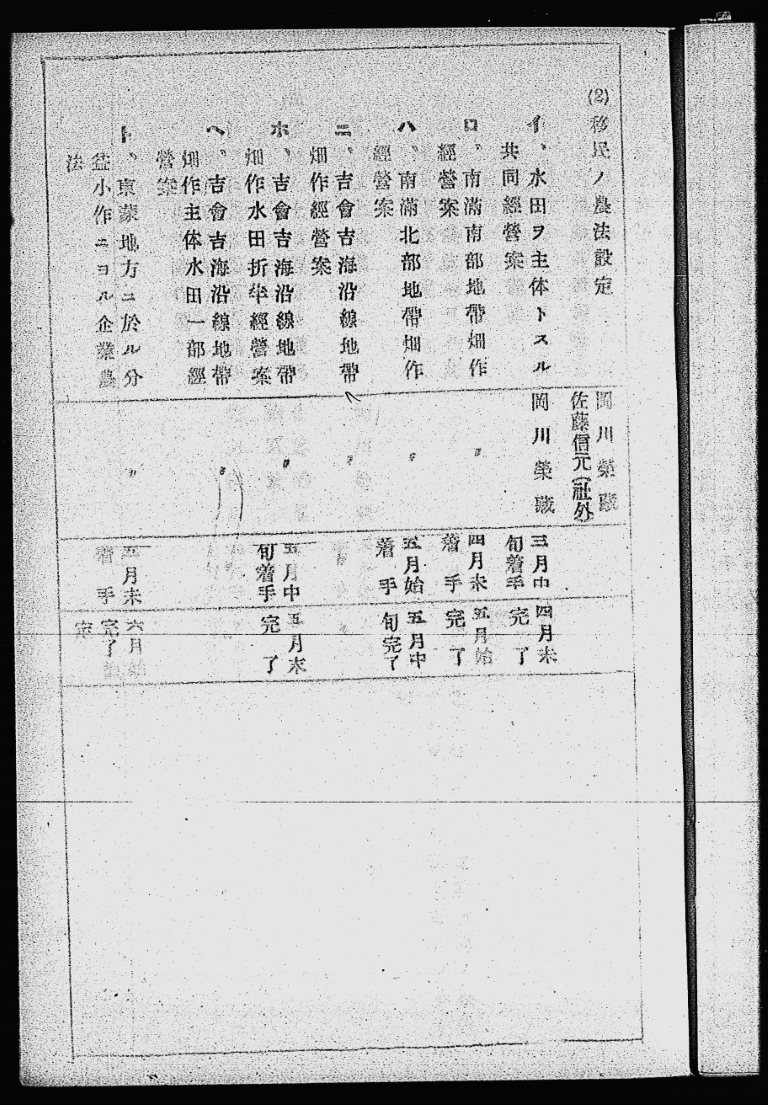 (2)移民ノ農法設定
イ、水田ヲ主体トスル
共同經營案
ロ、南滿南部地帶畑作
經營案
ハ、南滿北部地帶畑作
經營案
ニ、吉會吉海沿線地帶
畑作經營案
ホ、吉會吉海沿線地帶
畑作水田折半經營案
ヘ、吉會吉海沿線地帶
畑作主体水田一部經
營案
ト、東蒙地方ニ於ル分
益小作ニヨル企業農
法
岡川榮藏
佐藤信元(社外)
岡川榮藏
〃
〃
〃
〃
〃
〃
三月中
旬着手
四月末
着手
五月始
着手
五月中
旬着手
五月末
着手
四月末
完了
五月始
完了
五月中
旬完了
五月末
完了
六月始
完了